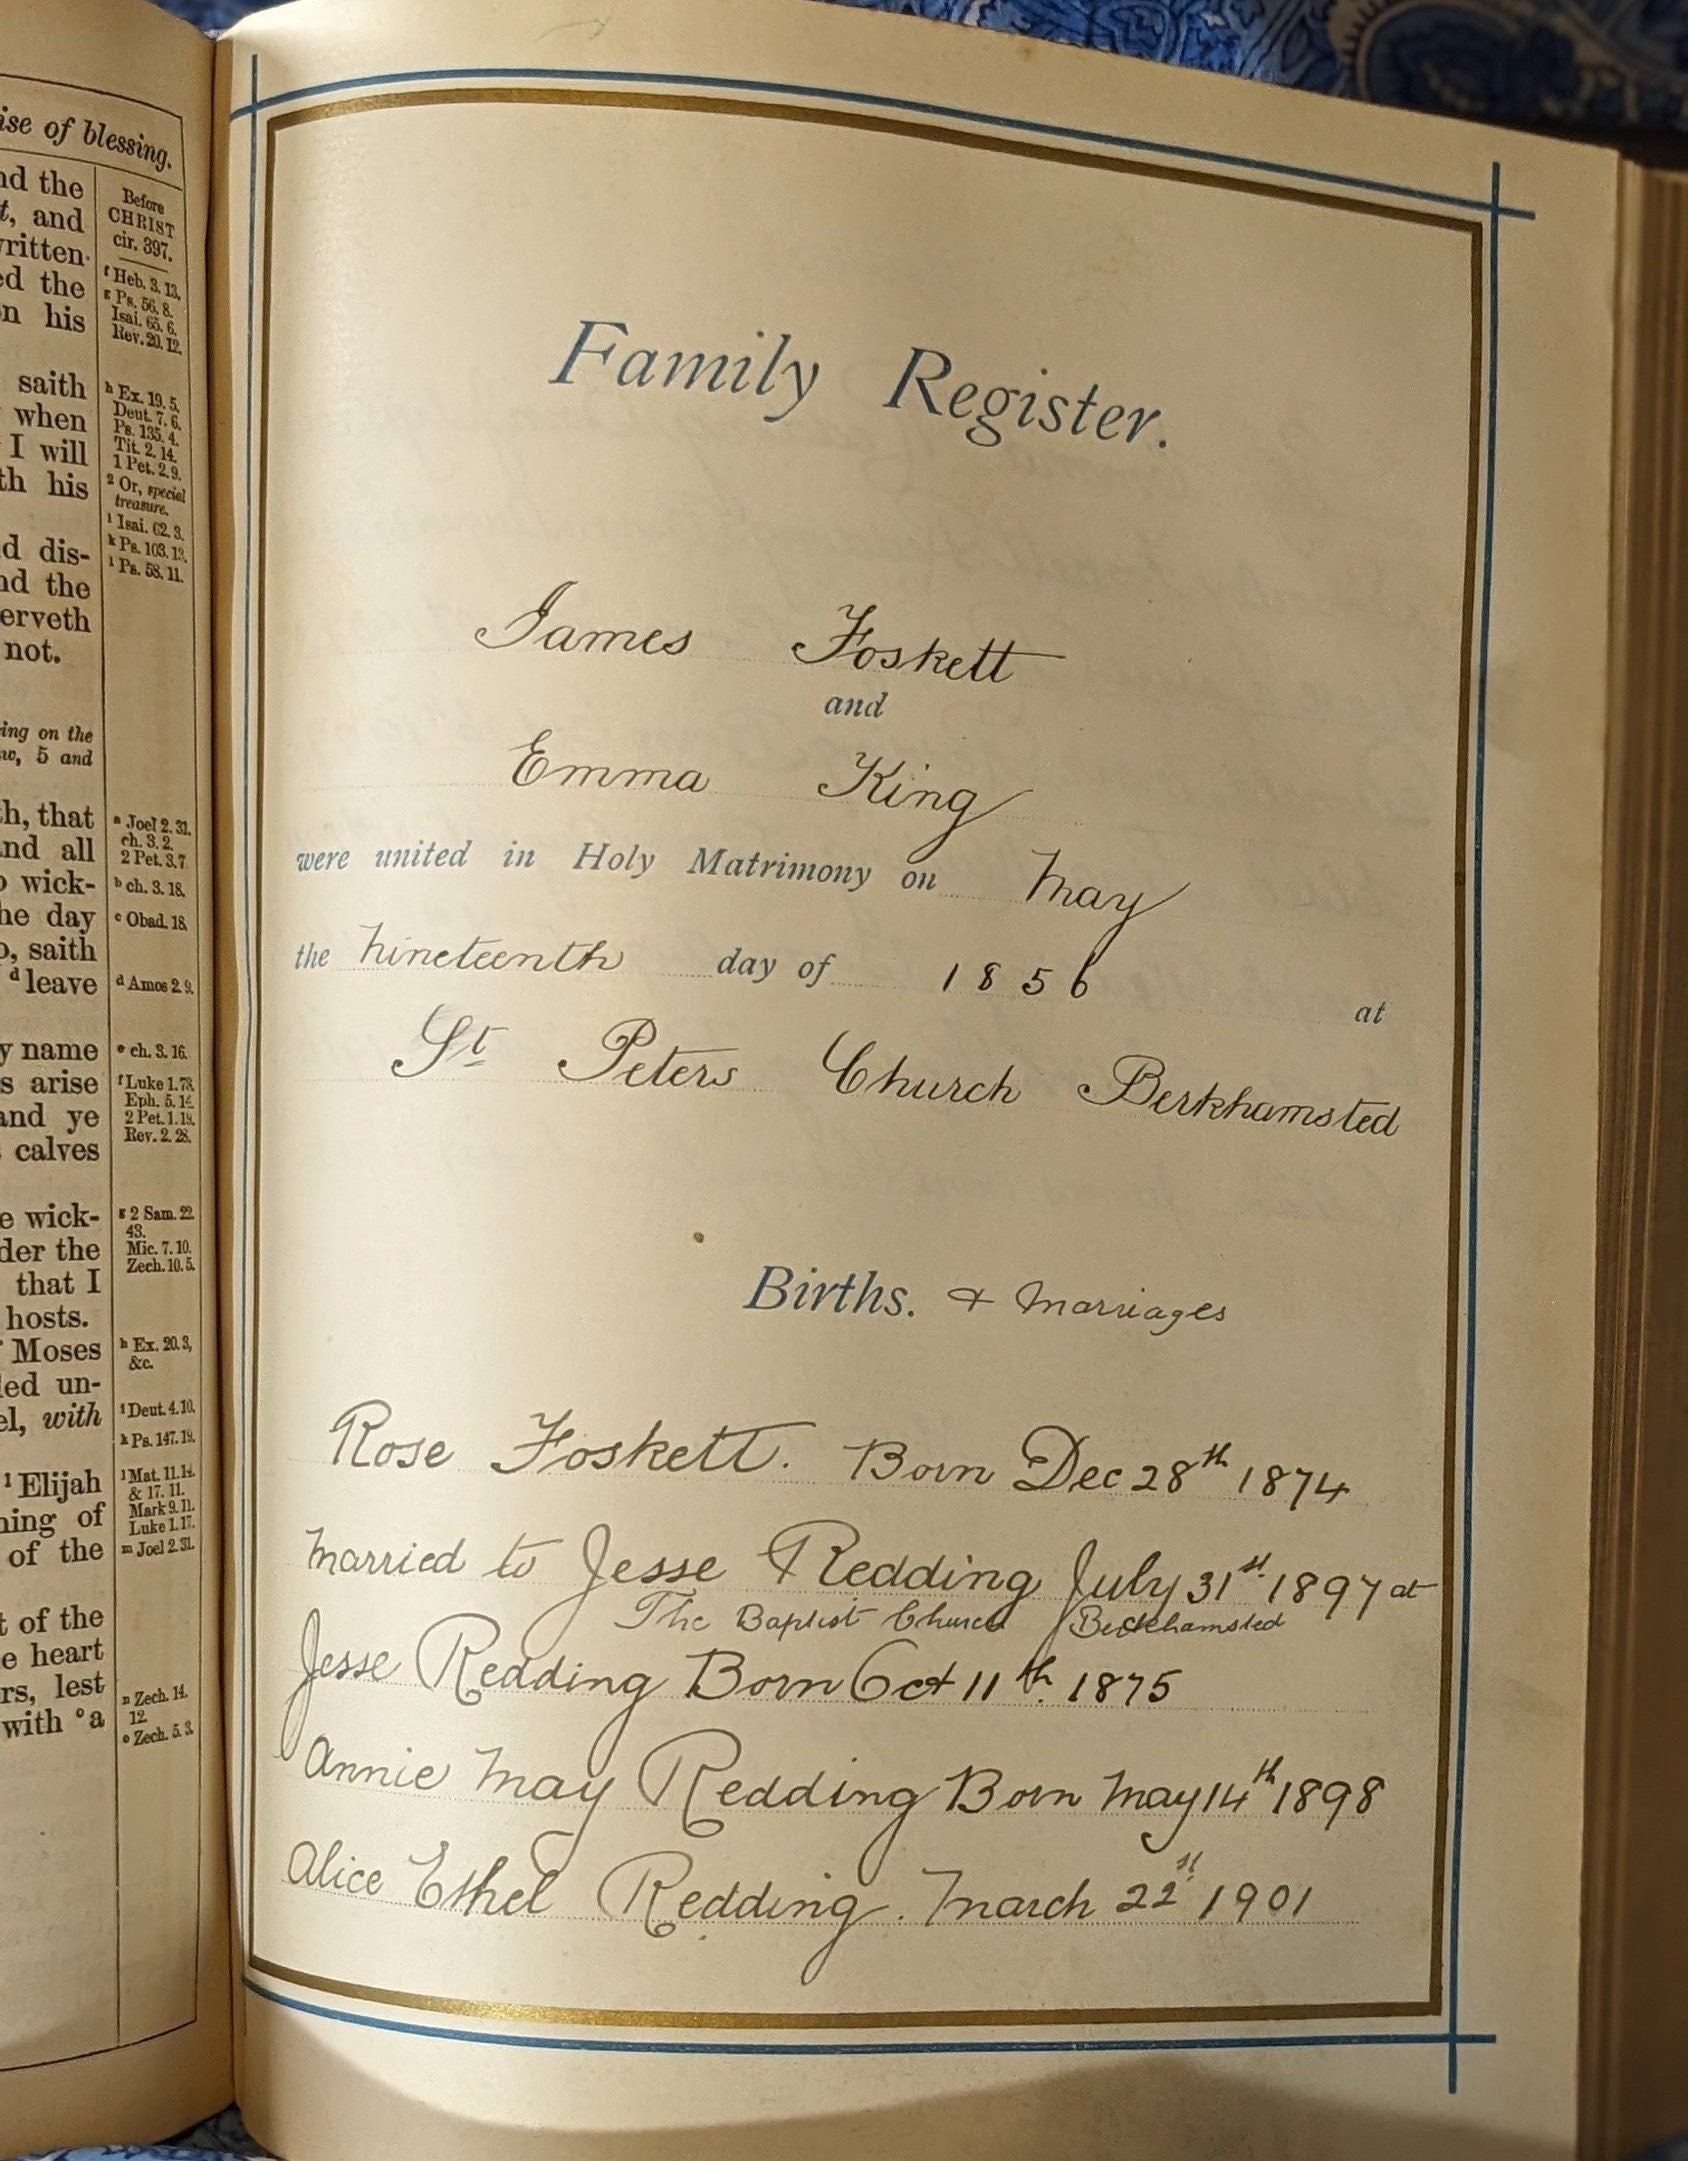 ise of blessing.
nd the
t, and
written
ed the
n his
saith
when
I will
th his
d dis-
nd the
erveth
not.
ing on the
w, 5 and
th, that
nd all
o wick-
he day
o, saith
d leave
y name
s arise
and ye
calves
e wick-
der the
that I
hosts.
Moses
led un-
el, with
1 Elijah
ning of
of the
t of the
e heart
rs, lest
with o a
Before
CHRIST
cir. 397.
f Heb. 3. 13.
g Ps. 56. 8.
Isai. 65. 6.
Rev. 20. 12.
h Ex. 19. 5.
Deut. 7. 6.
Ps. 135. 4.
Tit. 2. 14.
1 Pet. 2. 9.
2 Or, special
treasure.
i Isai. 62. 3.
k Ps. 103. 13.
l Ps. 58. 11.
a Joel 2. 31.
ch. 3. 2.
2 Pet. 3. 7.
b ch. 3. 18.
c Obad. 18.
d Amos 2. 9.
e ch. 3. 16.
f Luke 1. 78.
Eph. 5. 14.
2 Pet. 1. 19.
Rev. 2. 28.
g 2 Sam. 22.
43.
Mic. 7. 10.
Zech. 10. 5.
h Ex. 20. 3,
&c.
i Deut. 4. 10.
k Ps. 147. 19.
l Mat. 11. 14.
& 17. 11.
Mark 9. 11.
Luke 1. 17.
m Joel 2. 31.
n Zech. 14.
12.
o Zech. 5. 3.
Family Register.
James Foskett
and
Emma King
were united in Holy Matrimony on May
the nineteenth day of 1856 at
St Peters Church Berkhamsted
Births. & Marriages
Rose Foskett. Born Dec 28th 1874
Married to Jesse Redding July 31st 1897 at
The Baptist Church Berkhamsted
Jesse Redding Born Oct 11th 1875
Annie May Redding Born May 14th 1898
Alice Ethel Redding. March 22st 1901